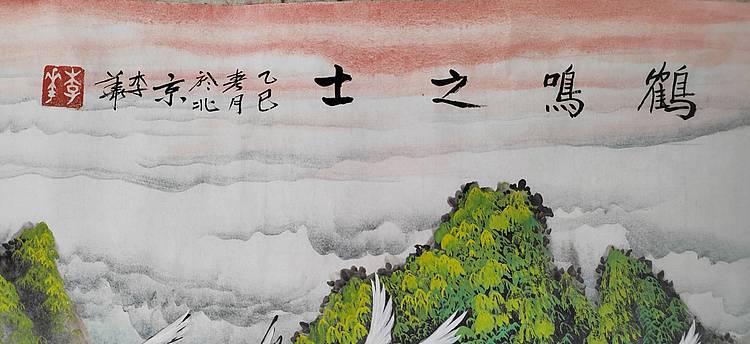 鶴鳴之士
乙巳
春月
於北
京
李
華
李華